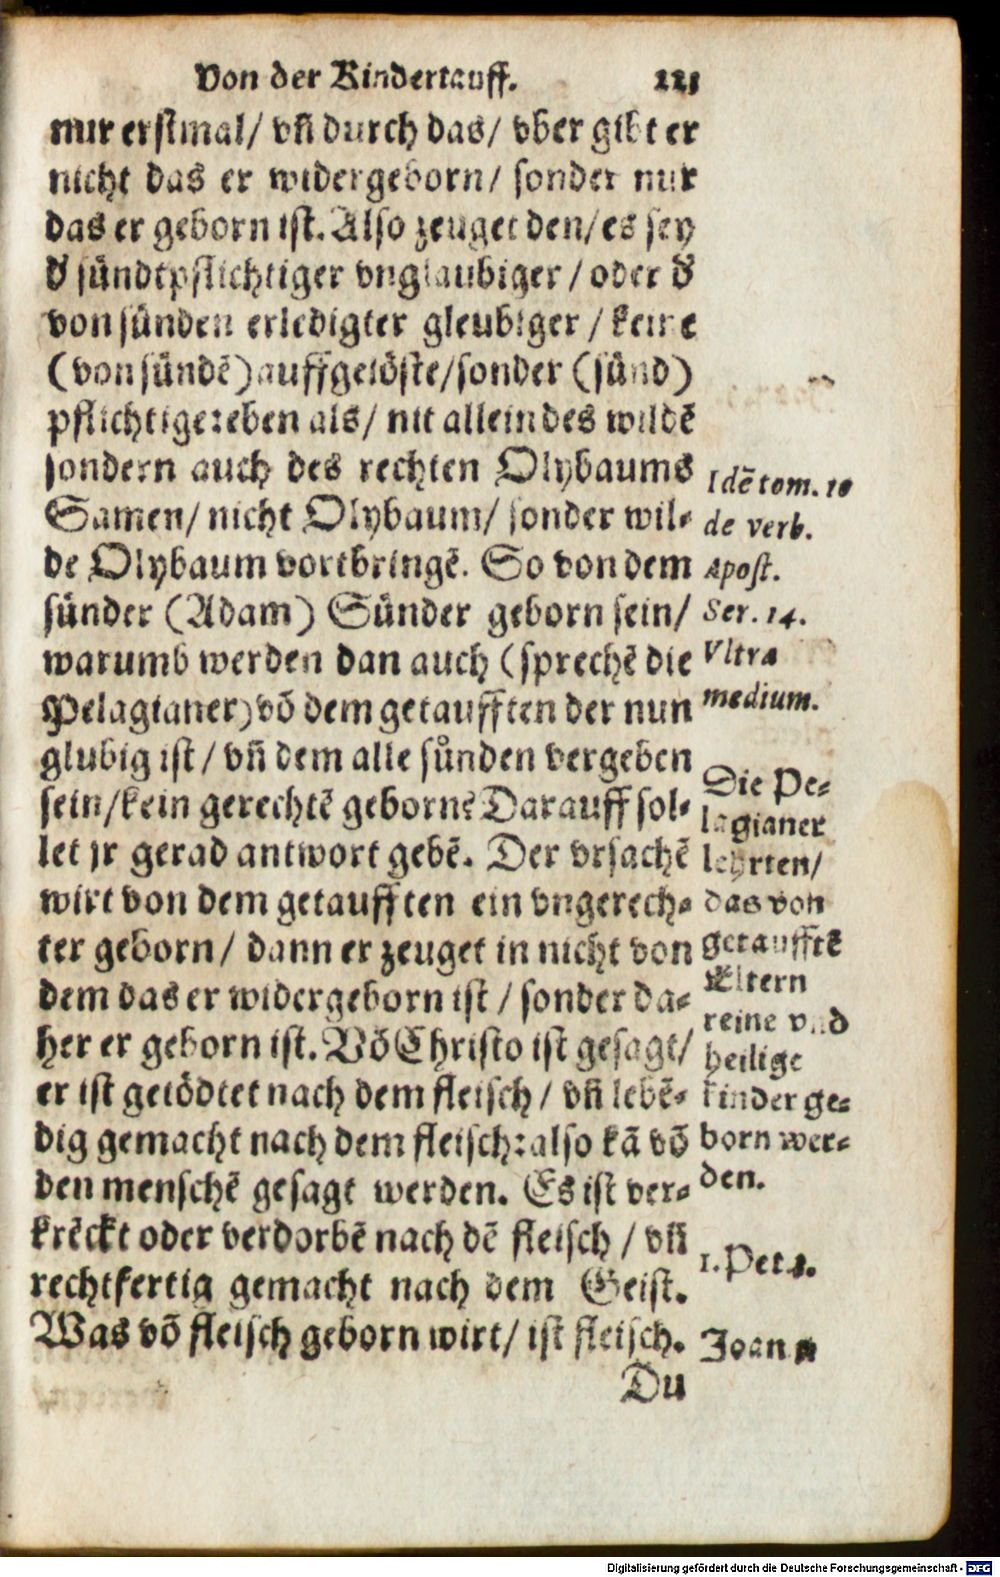 Von der Kindertauff. 221
nur erstmal/ vñ durch das/ vber gibt er
nicht das er widergeborn/ sonder nur
das er geborn ist. Also zeuget den/ es sey
d' sündtpflichtiger vnglaubiger / oder d'
von sünden erledigter gleubiger / keine
(von sündē) auffgelöste/ sonder (sünd)
pflichtige: eben als/ nit allein des wildē
sondern auch des rechten Olybaums
Samen/ nicht Olybaum/ sonder wil-
de Olybaum vortbringē. So von dem
sünder (Adam) Sünder geborn sein/
warumb werden dan auch (sprechē die
Pelagianer) võ dem getaufften der nun
glubig ist / vñ dem alle sůnden vergeben
sein/ kein gerechtē geborn? Darauff sol-
let jr gerad antwort gebē. Der vrsachē
wirt von dem getaufften ein vngerech-
ter geborn/ dann er zeuget in nicht von
dem das er widergeborn ist / sonder da-
her er geborn ist. Võ Christo ist gesagt/
er ist getödtet nach dem fleisch / vñ lebē-
dig gemacht nach dem fleisch: also kã võ
den menschē gesagt werden. Es ist ver-
krēckt oder verdorbē nach dē fleisch / vñ
rechtfertig gemacht nach dem Geist.
Was võ fleisch geborn wirt/ ist fleisch.
Du
Idē tom. 10
de verb.
Apost.
Ser. 14.
Vltra
medium.
Die Pe-
lagianer
lehrten/
das von
getaufftē
Eltern
reine vnd
heilige
kinder ge-
born wer-
den.
1. Pet. 3.
Joan
Digitalisierung gefördert durch die Deutsche Forschungsgemeinschaft - DFG